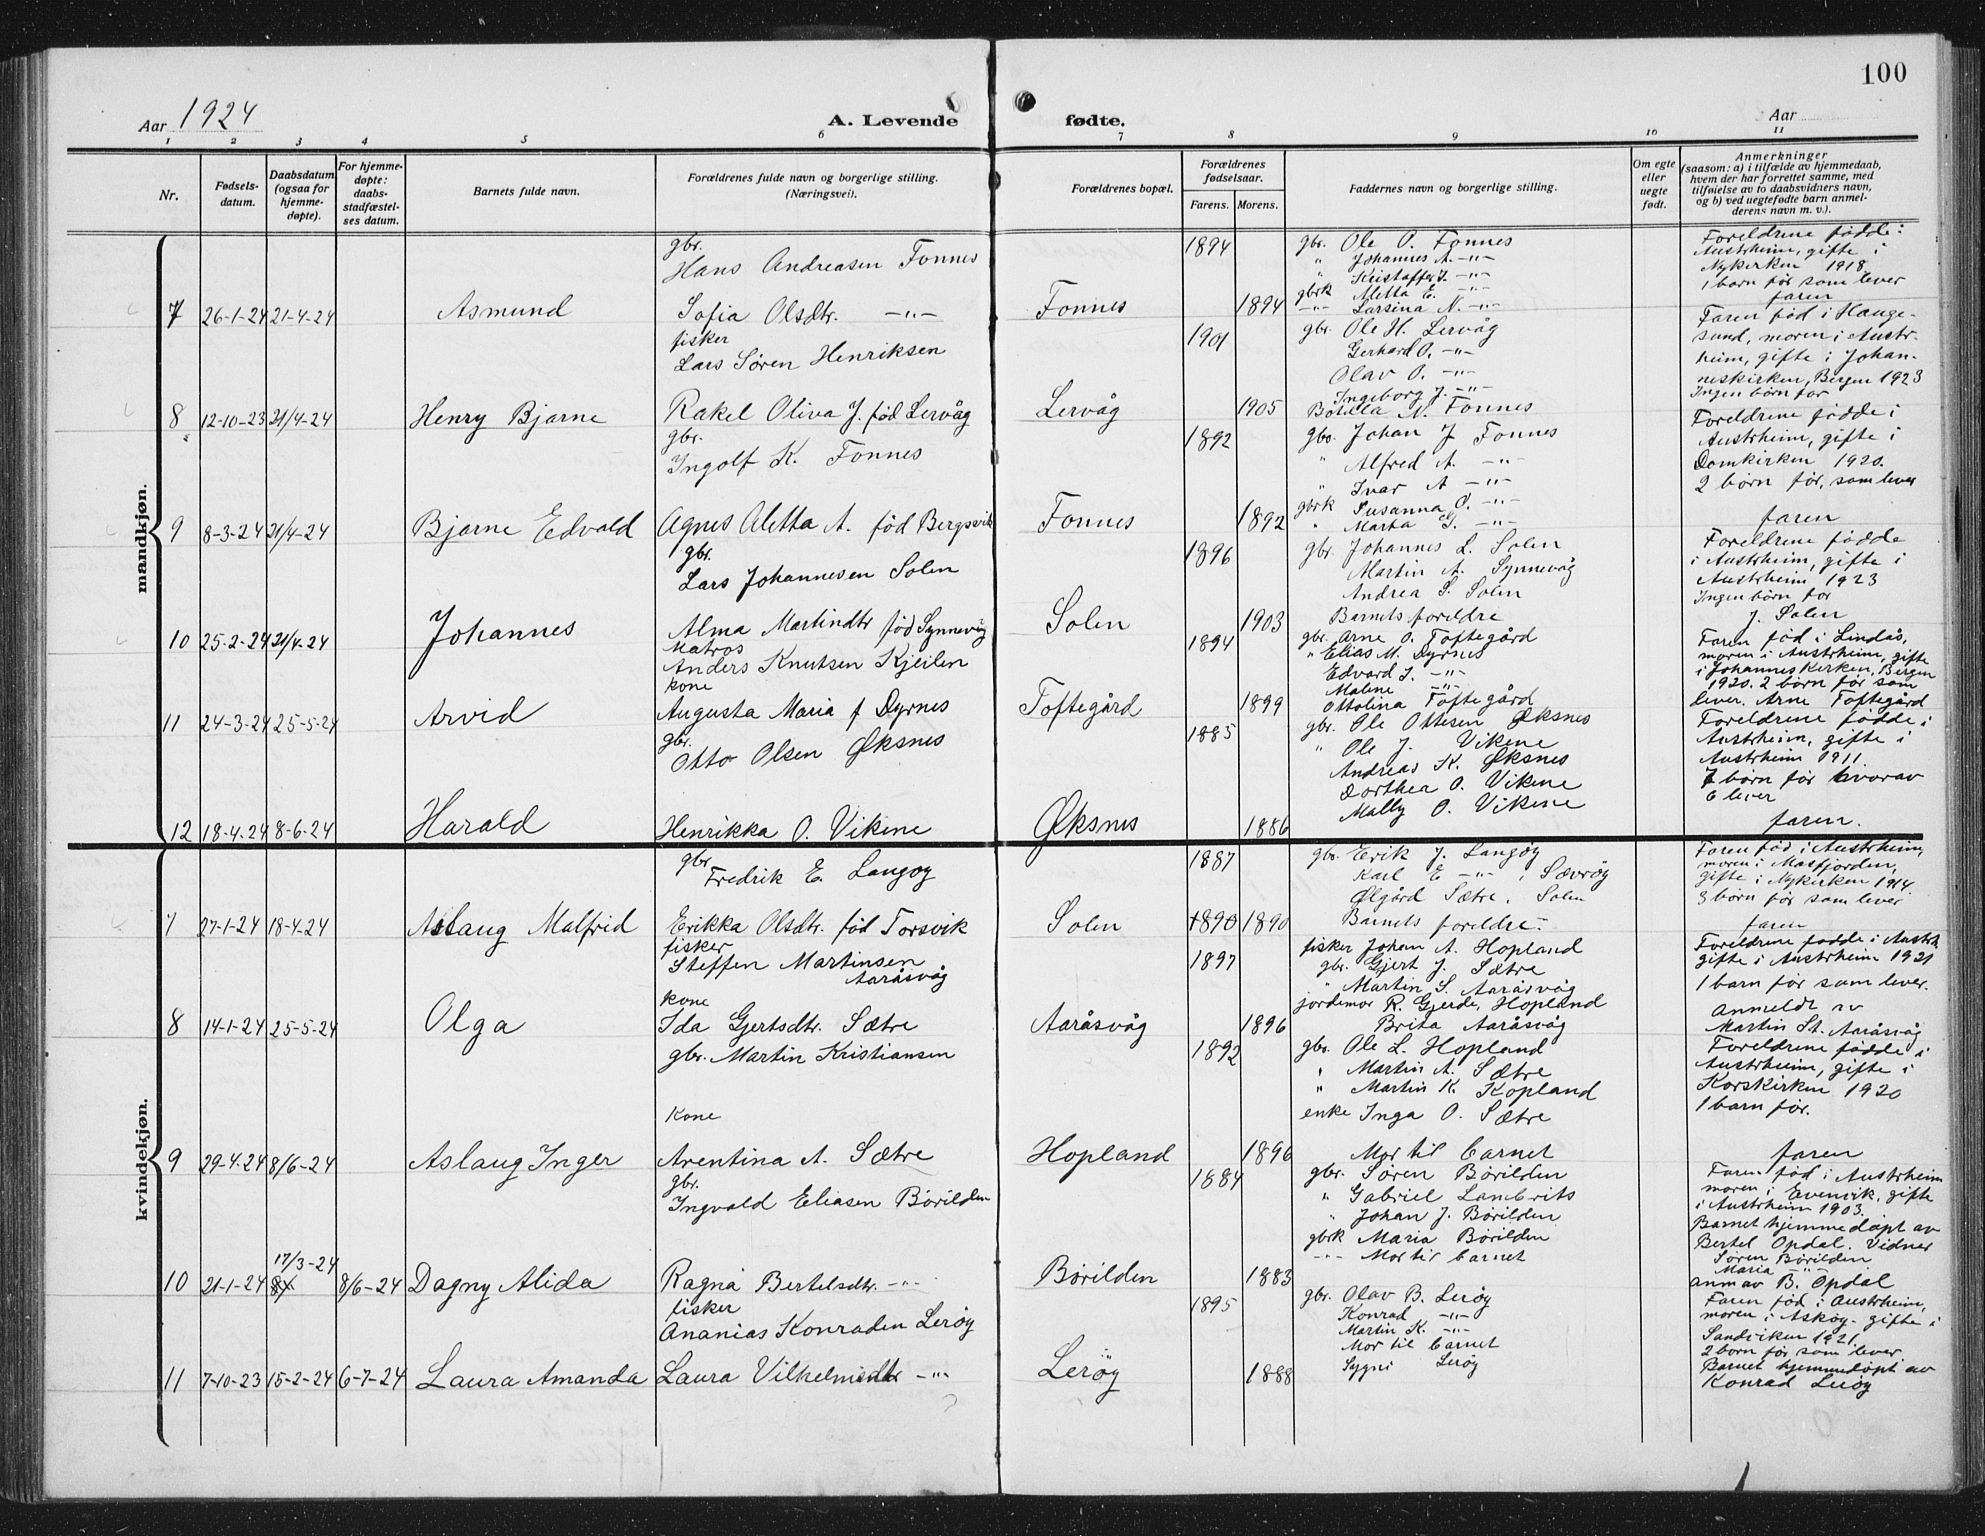 100
Aar 1924
A. Levende fødte.
Aar
1 2 3 4 5 6 7 8 9 10 11
Nr.
Fødsels-
datum.
Daabsdatum
(ogsaa for
hjemme-
døpte).
For hjemme-
døpte:
daabs-
stadfæstel-
ses datum.
Barnets fulde navn.
Forældrenes fulde navn og borgerlige stilling.
(Næringsvei).
Forældrenes bopæl.
Forældrenes
fødselsaar.
Farens. Morens.
Faddernes navn og borgerlige stilling.
Om egte
eller
uegte
født.
Anmerkninger
(saasom: a) i tilfælde av hjemmedaab,
hvem der har forrettet samme, med
tilføielse av to daabsvidners navn,
og b) ved uegtefødte barn anmel-
derens navn m. v.).
mandkjøn.
7 26-1-24 21-4-24 Asmund
gbr.
Hans Andreasen Fonnes
Sofia Olsdtr. -"-
Fonnes
1894
1894
gbr. Ole O. Fonnes
" Johannes A. -"-
" Kristoffer J. -"-
gbrk Aletta E. -"-
-"- Larsina N. -"-
Foreldrene fødde i
Austrheim, gifte i
Nykirken 1918
1 barn før som lever
faren
8 12-10-23 21/4-24 Henry Bjarne
fisker
Lars Søren Henriksen
Rakel Oliva J. fød Lervåg
Lervåg
1901
1905
gbr. Ole H. Lervåg
Gerhard O. -"-
Olav O. -"-
Ingeborg J. -"-
Botilla N. Fonnes
Faren fød i Hauge-
sund, moren i Austr-
heim, gifte i Johan-
neskirken, Bergen 1923
Ingen børn før
9 8-3-24 21/4-24 Bjarne Edvald
gbr.
Ingolf K. Fonnes
Agnes Aletta A. fød Bergsvik
Fonnes
1892
1892
gbr. Johan J Fonnes
" Alfred A. -"-
" Ivar A -"-
gbrk Susanna O. -"-
" Marta G. -"-
Foreldrene fødde i
Austrheim, gifte i
Domkirken 1920.
2 børn før, som lever
faren
10 25-2-24 21/4-24 Johannes
gbr.
Lars Johannesen Solen
Alma Martindtr fød Synnevåg
Solen
1896
1903
gbr. Johannes L. Solen
Martin A. Synnevåg
Andrea S. Solen
Barnets foreldre
Foreldrene fødde
i Austrheim, gifte i
Austrheim 1923
Ingen børn før
J. Solen
11 24-3-24 25-5-24 Arvid
Matros
Anders Knutsen Kjeilen
kone
Augusta Maria f Dyrnes
Toftegård
1894
1899
gbr. Arne O. Toftegård
" Elias M. Dyrnes
Edvard J. -"-
Malene -"-
Ottolina Toftegård
Faren fød i Lindås,
moren i Austrheim, gifte
i Johannes Kirken, Bergen
1920. 2 børn før som
lever. Arne Toftegård
12 18-4-24 8-6-24 Harald
gbr.
Otto Olsen Øksnes
Henrikka O. Vikene
Øksnes
1885
1886
gbr. Ole Ottesen Øksnes
" Ole J. Vikene
Andreas K. Øksnes
Dorthea O. Vikene
Mally O. Vikene
Foreldrene fødde i
Austrheim, gifte i
Austrheim 1911
7 børn før hvorav
6 lever
faren.
kvindekjøn.
7 27-1-24 18-4-24 Aslaug Malfrid
gbr
Fredrik E. Langøy
Erikka Olsdtr. fød Torsvik
Solen
1887
1890 1890
gbr. Erik J. Langøy
Karl E -"- , Sævrøy
Ølgård Sætre, Solen
Barnets foreldre.
Faren fød i Austrheim,
moren i Masfjorden,
gifte i Nykirken 1914.
3 børn før som lever
faren
8 14-1-24 25-5-24 Olga
fisker
Steffen Martinsen
Aaråsvåg
kone
Ida Gjertsdtr. Sætre
Aaråsvåg
1897
1896
fisker Johan A. Hopland
gbr. Gjert J. Sætre
" Martin S. Aaråsvåg
jordemor R. Gjerde, Hopland
Brita Aaråsvåg
Foreldrene fødde i Austrh.
gifte i Austrheim 1921
1 barn før som lever.
anmeldt av
Martin St. Aaråsvåg
9 29-4-24 8/6-24 Aslaug Inger
gbr. Martin Kristiansen
Kone
Arentina A. Sætre
Hopland
1892
1896
gbr. Ole L. Hopland
" Martin A. Sætre
" Martin K. Kopland
enke Inga O. Sætre
Mor til barnet
Foreldrene fødde i
Austrheim, gifte i
Korskirken 1920
1 barn før.
faren
10 21-1-24 17/3-24 8/6-24 Dagny Alida
gbr.
Ingvald Eliasen Børilden
Ragna Bertelsdtr. -"-
Børilden
1884
1883
gbr. Søren Børilden
" Gabriel Lambrits
" Johan J. Børilden
gbrk Maria Børilden
-"- Mor til barnet
Faren fød i Austrheim
moren i Evenvik, gifte
i Austrheim 1903.
Barnet hjemmedøpt av
Bertel Opdal. Vidner
Søren Børilden
Maria -"-
anm av B. Opdal
11 7-10-23 15-2-24 6-7-24 Laura Amanda
fisker
Ananias Konraden Lerøy
Laura Vilhelmsdtr -"-
Lerøy
1895
1888
gbr. Olav B. Lerøy
Konrad -"-
Martin K. -"-
Mor til barnet
Sygni Lerøy
Faren fød i Austrheim,
moren i Askøy. gifte i
Sandviken 1921
2 børn før som lever
Barnet hjemmedøpt av
Konrad Lerøy